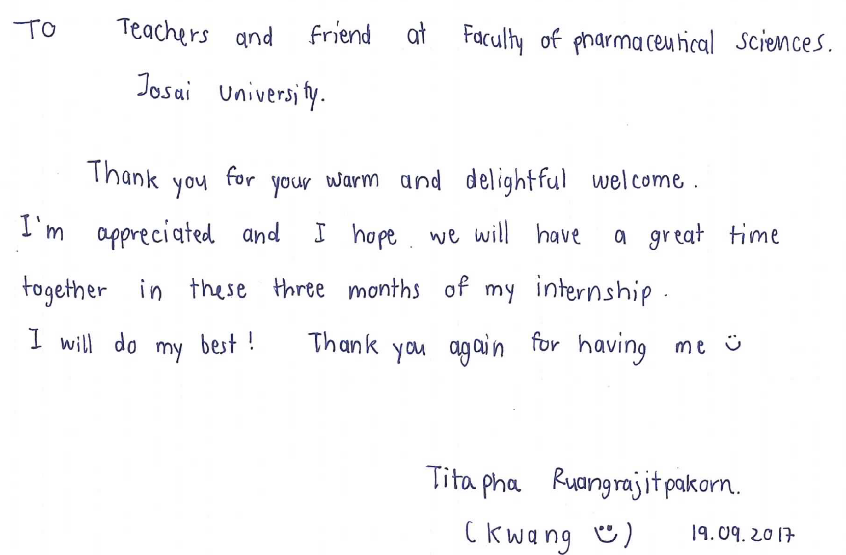 TO Teachers and friend at Faculty of pharmaceutical sciences.
Josai University.
Thank you for your warm and delightful welcome.
I'm appreciated and I hope we will have a great time
together in these three months of my internship.
I will do my best! Thank you again for having me ü
Titapha Ruangrajitpakorn.
(Kwang ü) 19.09.2017